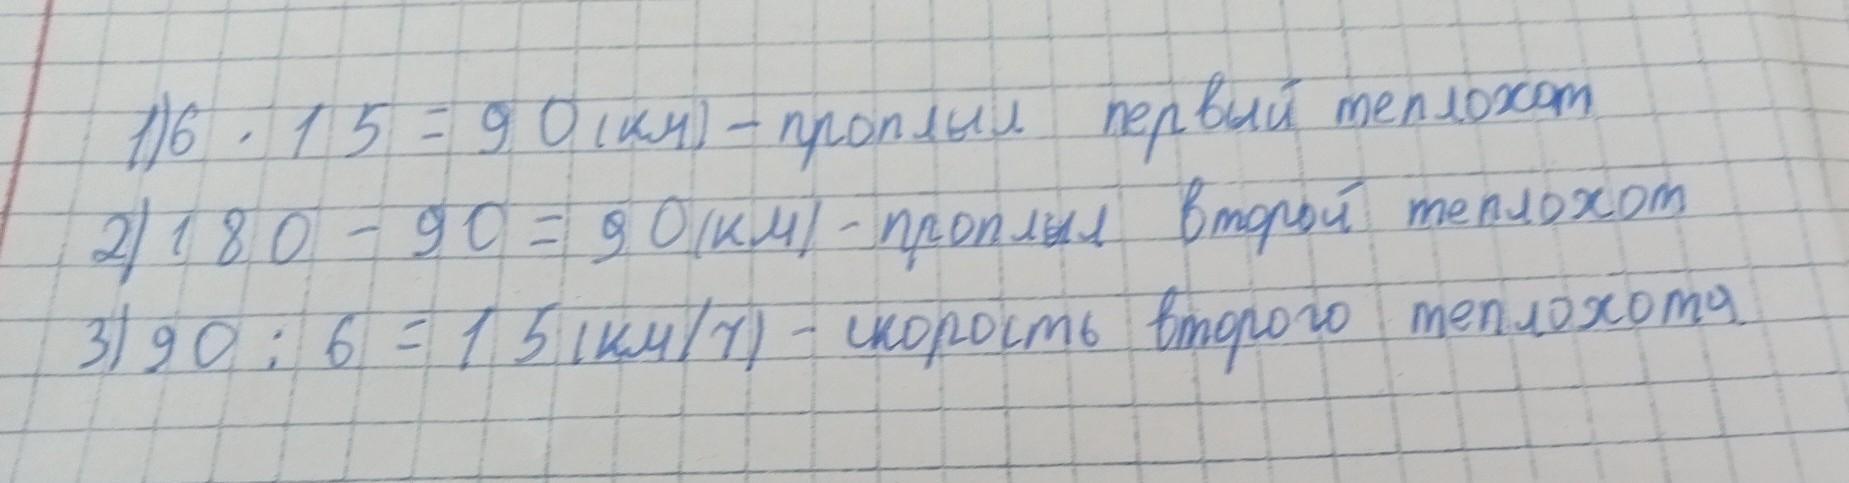 1)6 · 15 = 90(км) - проплыл первый теплоход
2)180 - 90 = 90(км) - проплыл второй теплоход
3)90 : 6 = 15(км/ч) - скорость второго теплохода